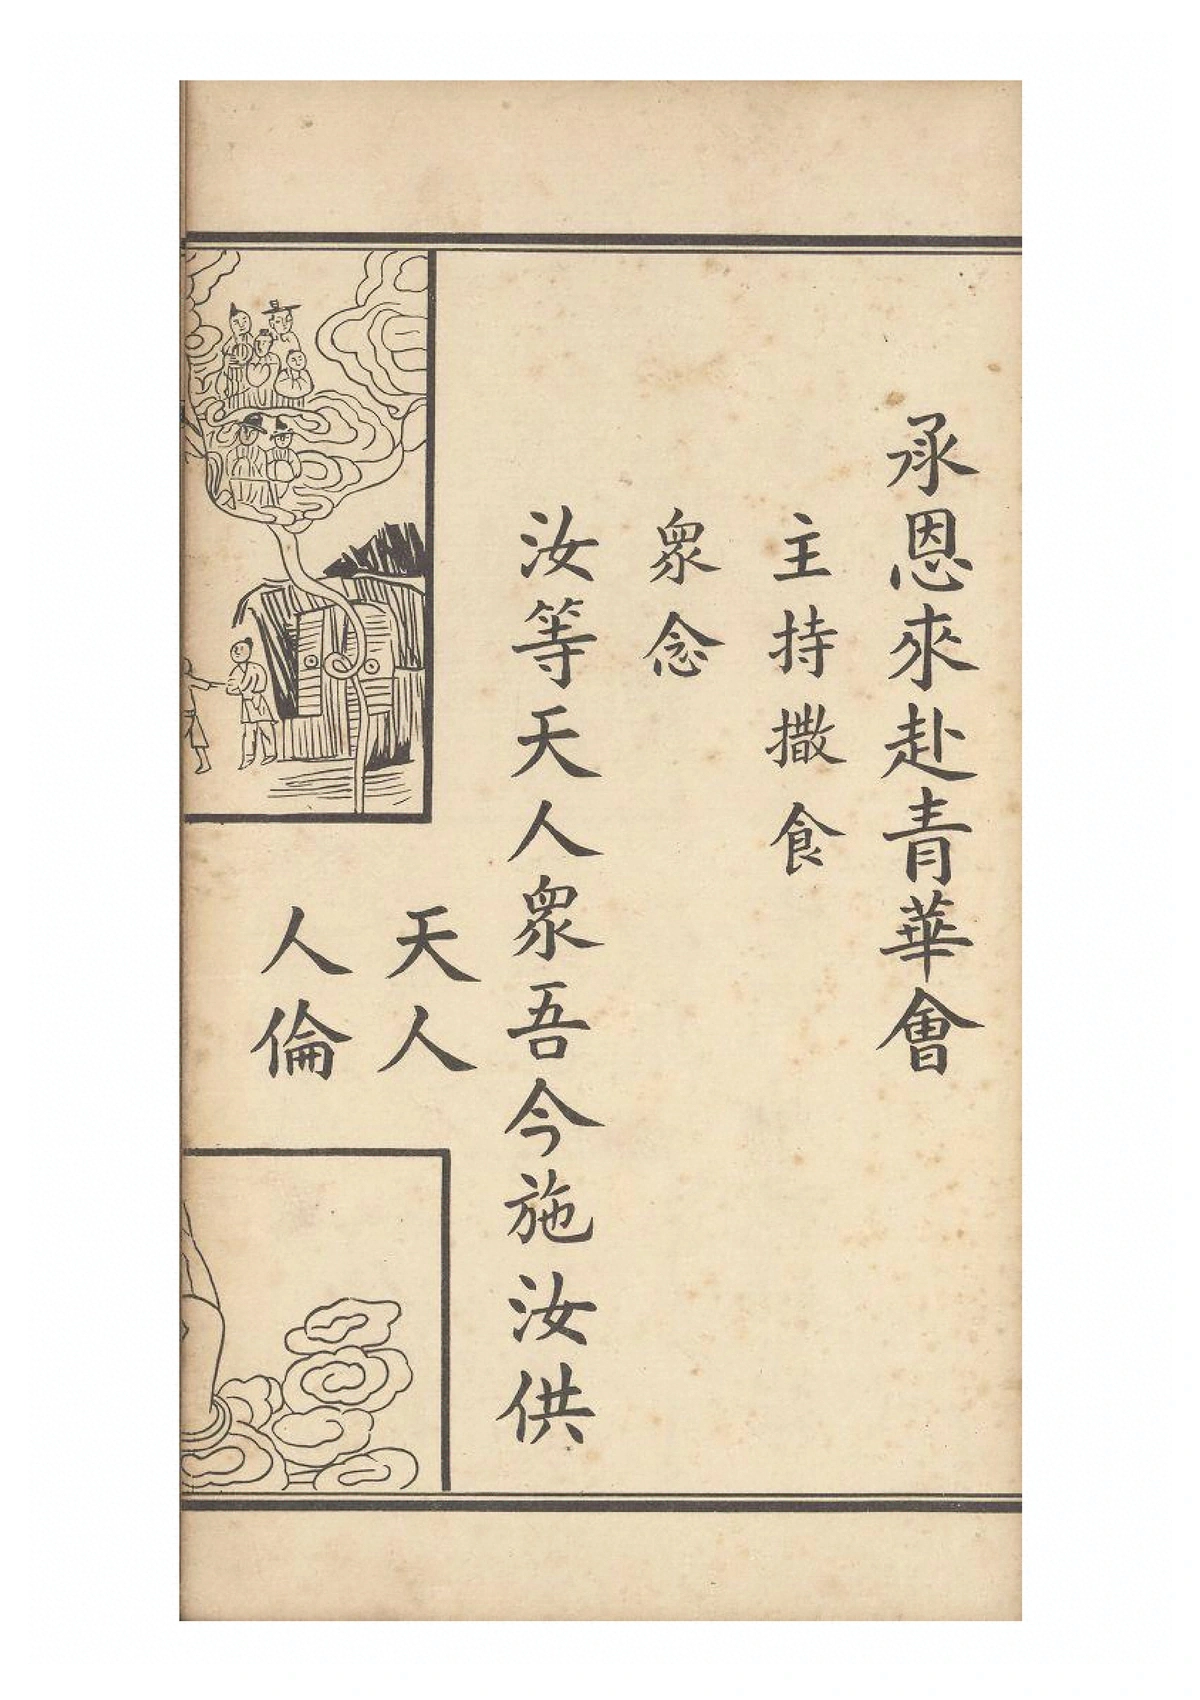 承恩來赴青華會
主持撒食
眾念
汝等天人眾吾今施汝供
天人
人倫